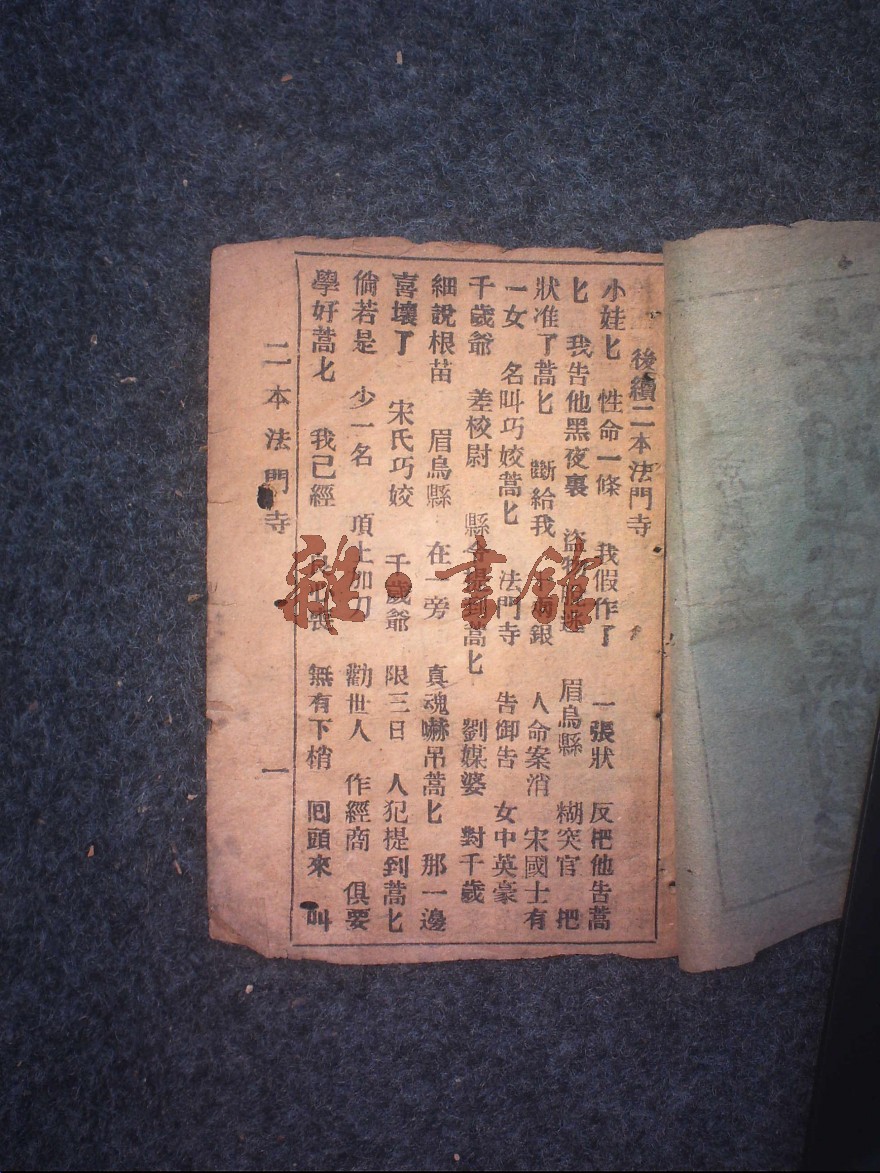 後續二本法門寺
小娃匕 性命一條 我假作了 一張狀 反把他告蒿
匕 我告他黑夜裏 盜 眉烏縣 糊突官 把
狀准了蒿匕 斷給我 銀 人命案消 宋國士有
一女 名叫巧姣蒿匕 法門寺 告御告 女中英豪
千歲爺 差校尉 縣 到蒿匕 劉媒婆 對千歲
細說根苗 眉烏縣 在一旁 真魂嚇吊蒿匕 那一邊
喜壞了 宋氏巧姣 千歲爺 限三日 人犯提到蒿匕
倘若是 少一名 項上加刀 勸世人 作經商 俱要
學好蒿匕 我已經 喪 無有下梢 囘頭來 叫
二本法門寺 一
雜·書館